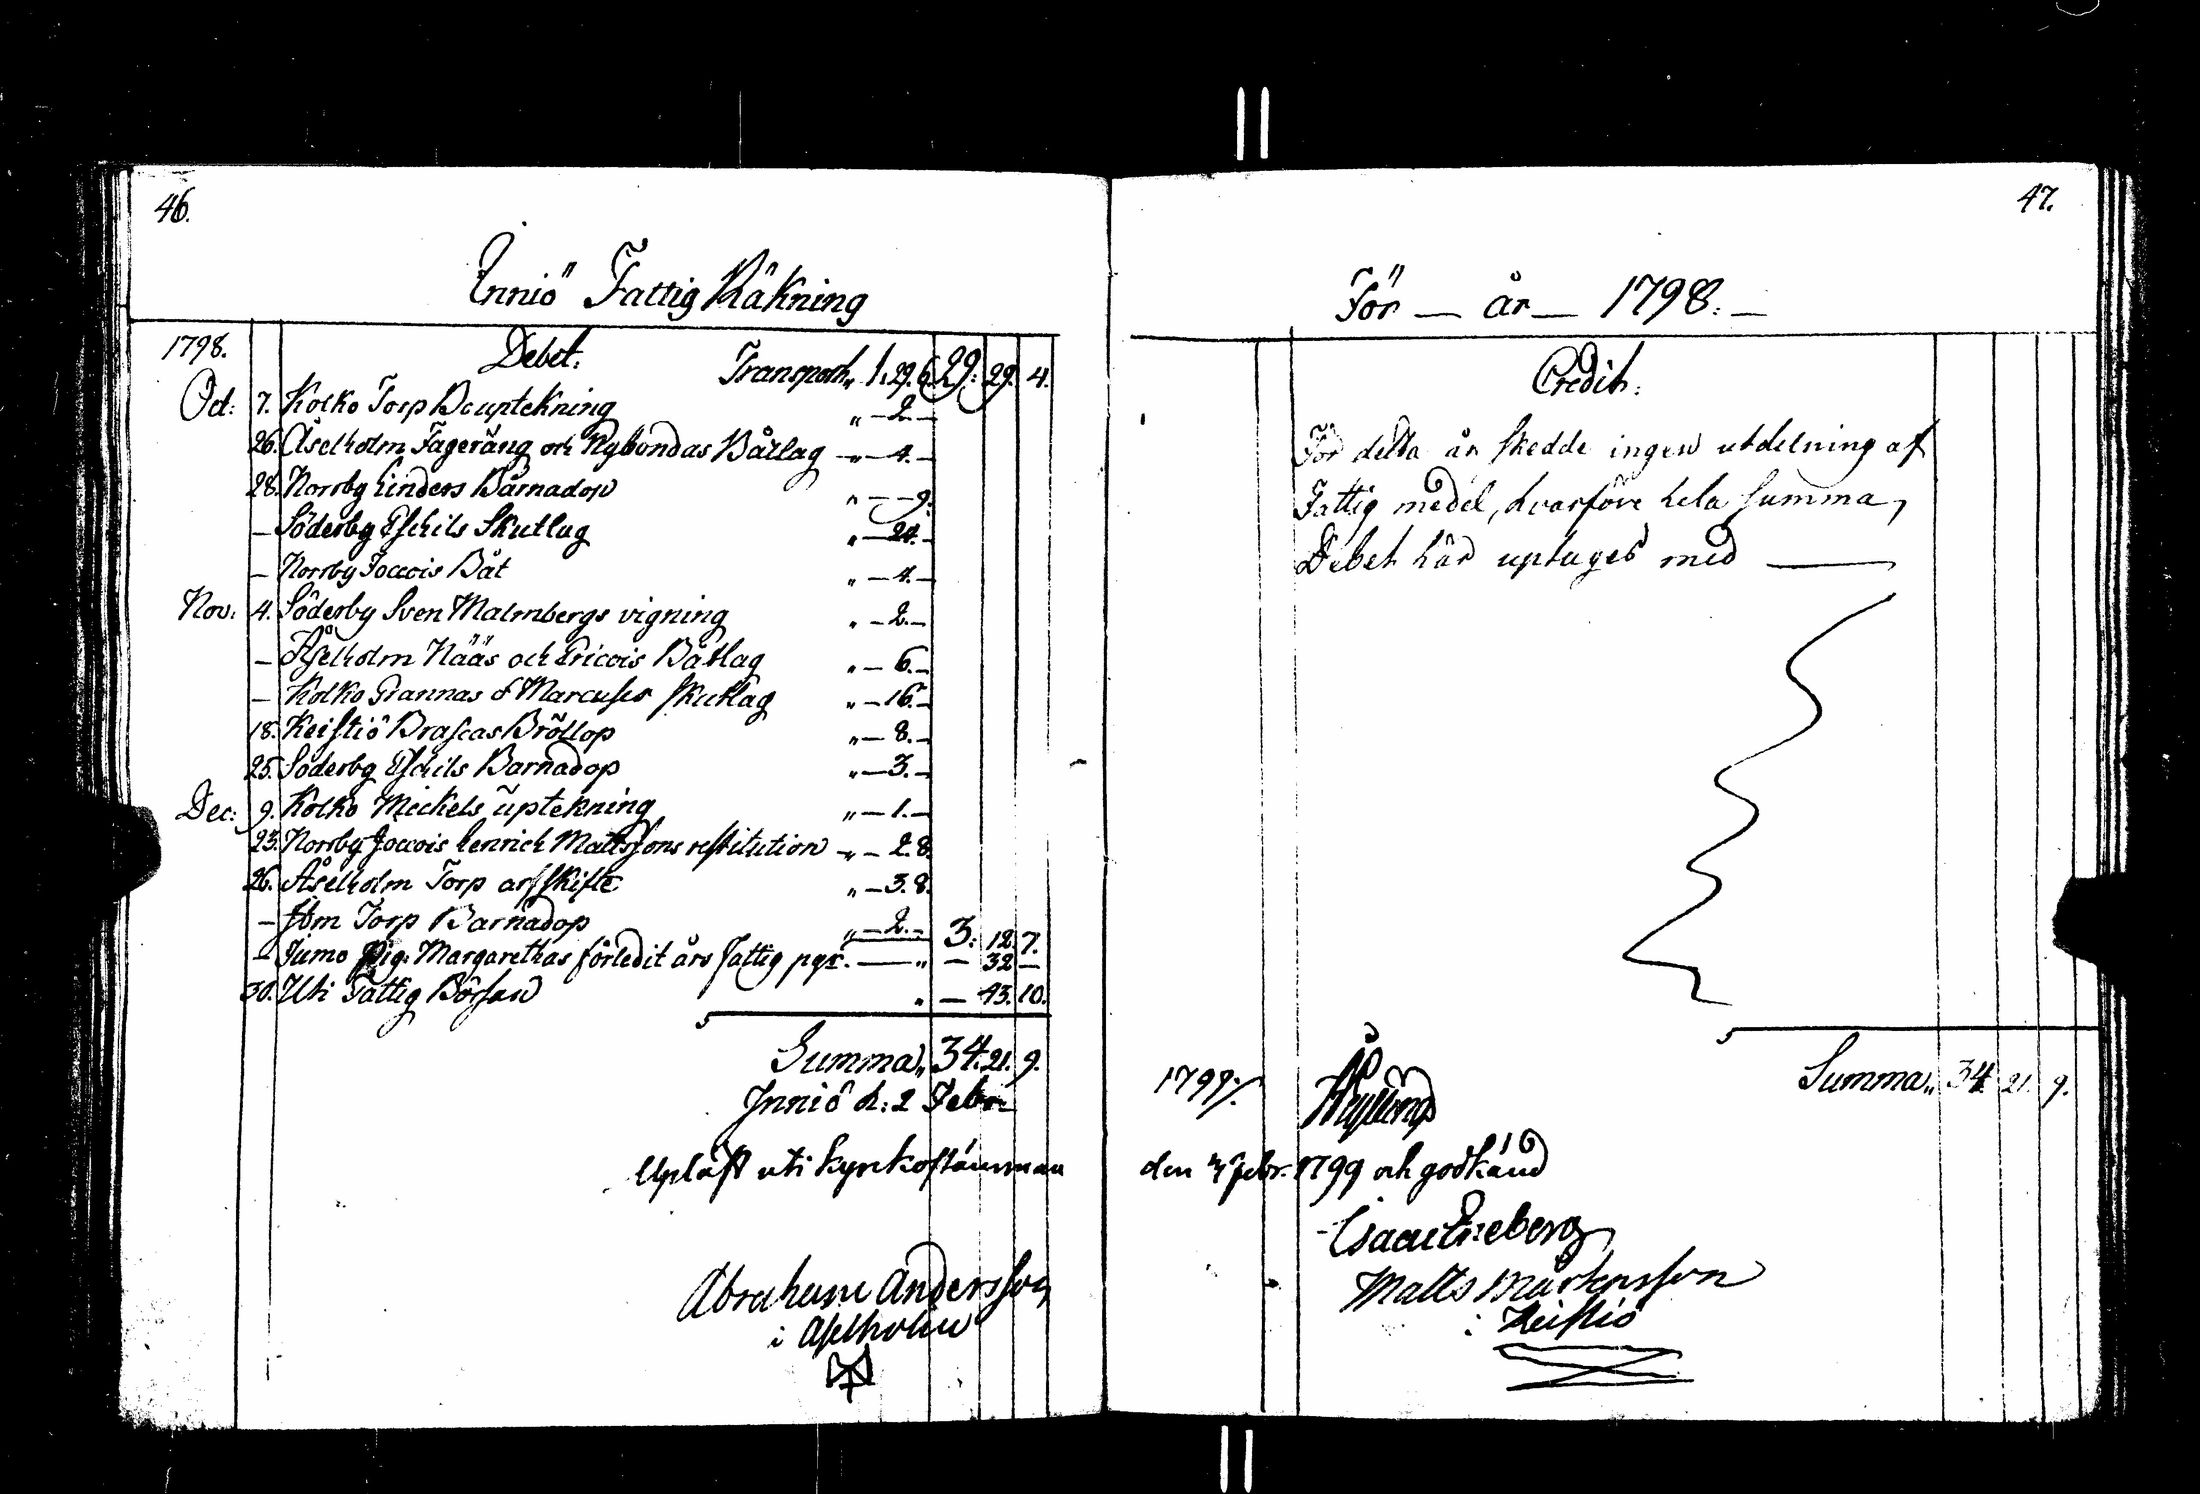 46.
Inniö Fattig Räkning
1798. Debet. Transport „ 1. 29. 6. 29. 29. 4.
Oct: 7. Kolko Torp Bouptekning „ — 2. —
26. Åselholm Fageräng och Nybondas Båtlag „ — 4. —
28. Norrby Linders Barnadop „ — — 9.
— Söderby Eschils Skutlag „ — 24. —
— Norrby Jocois Båt „ — 4. —
Nov: 4. Söderby Sven Malmbergs vigning „ — 2. —
— Åselholm Nääs och Ericois Båtlag „ — 6. —
— Kolko Grannas o Marcuses skutlag „ — 16. —
18. Keistiö Brascas Bröllop „ — 8. —
25. Söderby Eschils Barnadop „ — 3. —
Dec: 9. Kolko Mickels uptekning „ — 1. —
23. Norrby Jocois Henrich Mattssons restitution „ — 2. 8.
26. Åselholm Torp arfskifte „ — 3. 8.
— Jbm Torp Barnadop „ — 2. — 3. 12. 7.
— Jumo Pig: Margarethas förledit års fattig pgr. — „ — 32 —
30. Uti Fattig Börsan „ — 43. 10.
Summa „ 34. 21. 9.
Inniö d: 2 Febr:
Upläst uti kyrkostämman
Abraham Andersson
i Åselholm
47.
För — år — 1798. —
Credit:
För detta år skedde ingen utdelning af
Fattig medel, hvarföre hela summa,
Debet här uptages med —
Summa „ 34. 21. 9.
1799.
den 4 febr. 1799 och godkänd
Isaac Eneberg
Matts Mårtensson
i Keistiö